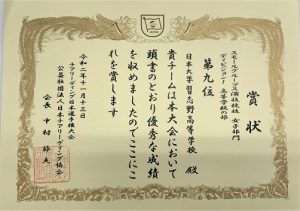 賞状
スモールグループス演技競技 女子部門
ディビジョン1 高等学校の部
第九位
日本大学習志野高等学校 殿
貴チームは本大会において
頭書のとおり優秀な成績
を収めましたのでここにこ
れを賞します
令和二年十一月十三日
チアリーディング日本選手権大会
公益社団法人日本チアリーディング協会
会長 中村節夫